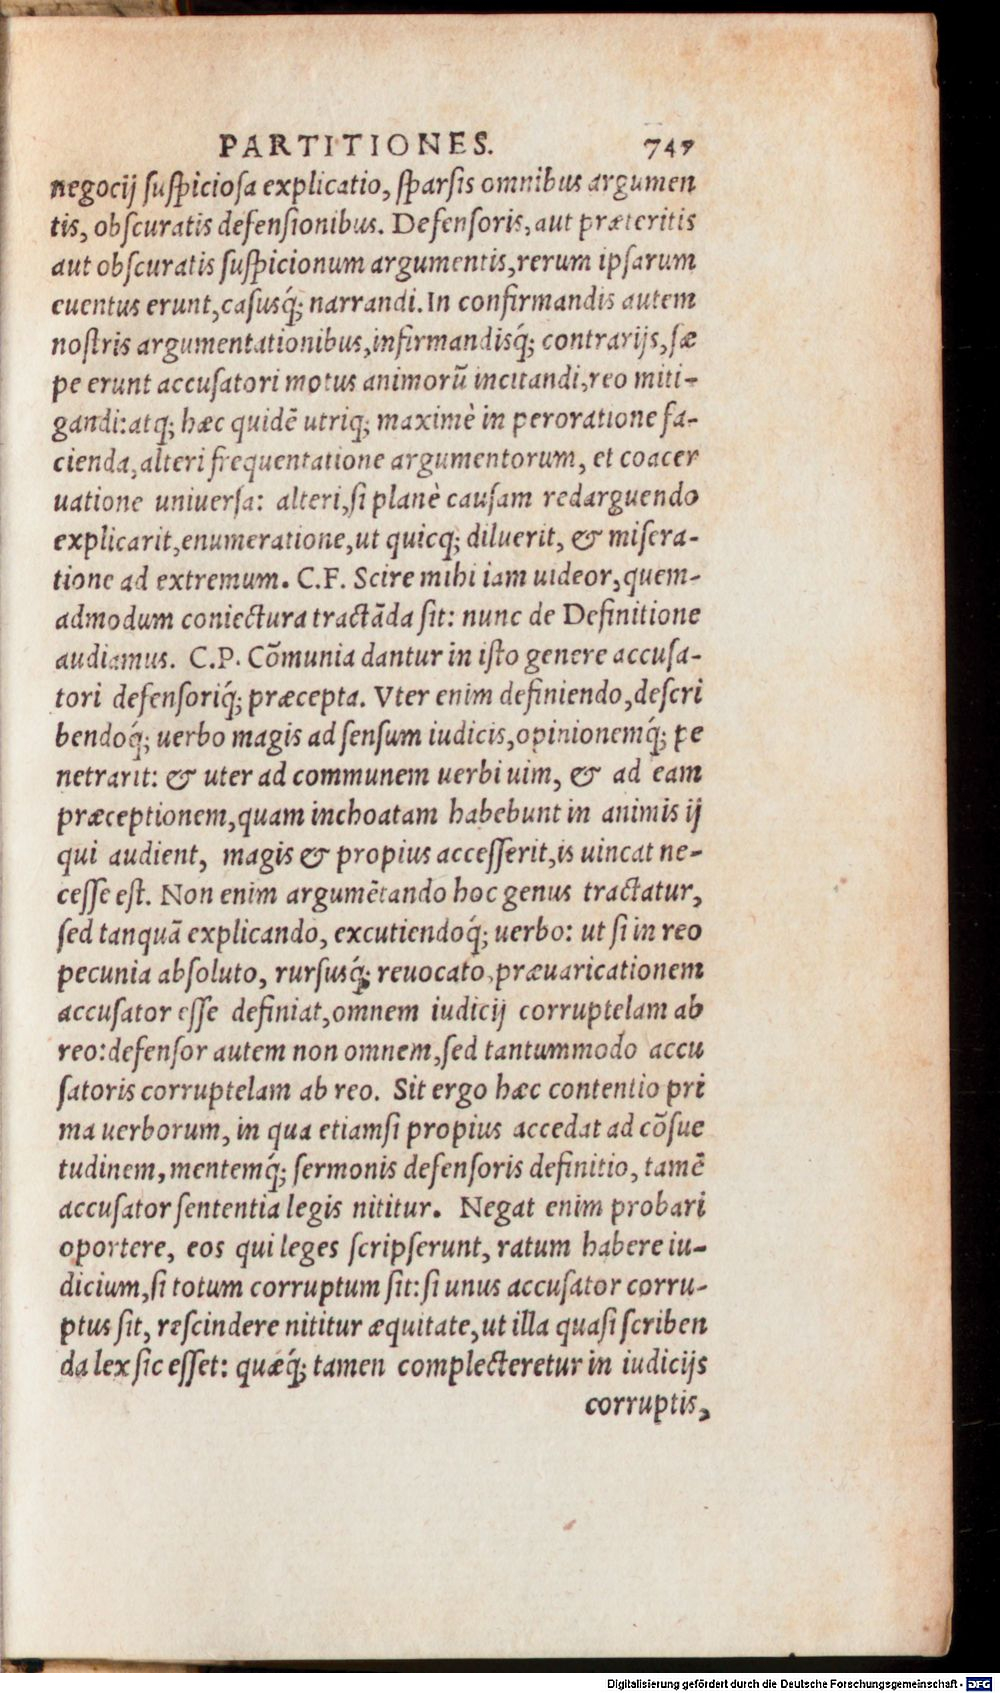 PARTITIONES. 747
negocij suſpicioſa explicatio, ſparſis omnibus argumen
tis, obſcuratis defenſionibus. Defenſoris, aut præteritis
aut obſcuratis ſuſpicionum argumentis, rerum ipſarum
euentus erunt, caſusq́; narrandi. In confirmandis autem
noſtris argumentationibus, infirmandisq́; contrarijs, ſæ
pe erunt accuſatori motus animorũ incitandi, reo miti-
gandi: atq; hæc quidẽ utriq; maximè in peroratione fa-
cienda, alteri frequentatione argumentorum, et coacer
uatione uniuerſa: alteri, ſi planè cauſam redarguendo
explicarit, enumeratione, ut quicq; diluerit, & miſera-
tione ad extremum. C.F. Scire mihi iam uideor, quem-
admodum coniectura tractãda ſit: nunc de Definitione
audiamus. C.P. Cõmunia dantur in iſto genere accuſa-
tori defenſoriq́; præcepta. Vter enim definiendo, deſcri
bendoq́; uerbo magis ad ſenſum iudicis, opinionemq́; pe
netrarit: & uter ad communem uerbi uim, & ad eam
præceptionem, quam inchoatam habebunt in animis ij
qui audient, magis & propius acceſſerit, is uincat ne-
ceſſe eſt. Non enim argumẽtando hoc genus tractatur,
ſed tanquã explicando, excutiendoq́; uerbo: ut ſi in reo
pecunia abſoluto, rurſusq́; reuocato, præuaricationem
accuſator eſſe definiat, omnem iudicij corruptelam ab
reo: defenſor autem non omnem, ſed tantummodo accu
ſatoris corruptelam ab reo. Sit ergo hæc contentio pri
ma uerborum, in qua etiamſi propius accedat ad cõſue
tudinem, mentemq́; ſermonis defenſoris definitio, tamẽ
accuſator ſententia legis nititur. Negat enim probari
oportere, eos qui leges ſcripſerunt, ratum habere iu-
dicium, ſi totum corruptum ſit: ſi unus accuſator corru-
ptus ſit, reſcindere nititur æquitate, ut illa quaſi ſcriben
da lex ſic eſſet: quæq́; tamen complecteretur in iudicijs
corruptis,
Digitalisierung gefördert durch die Deutsche Forschungsgemeinschaft - DFG